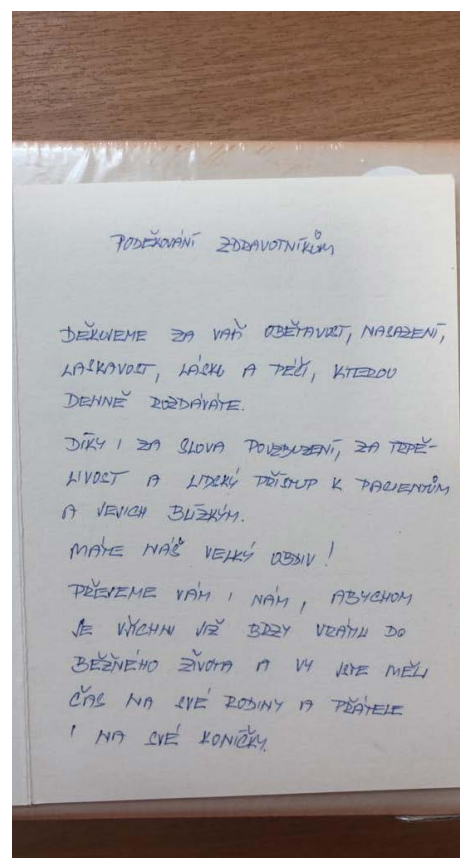 PODĚKOVÁNÍ ZDRAVOTNÍKŮM
DĚKUJEME ZA VAŠI OBĚTAVOST, NASAZENÍ,
LASKAVOST, LÁSKU A PÉČI, KTEROU
DENNĚ ROZDÁVÁTE.
DÍKY I ZA SLOVA POVZBUZENÍ, ZA TRPĚ-
LIVOST A LIDSKÝ PŘÍSTUP K PACIENTŮM
A JEJICH BLÍZKÝM.
MÁTE NÁŠ VELKÝ OBDIV!
PŘEJEME VÁM I NÁM, ABYCHOM
SE VŠICHNI JIŽ BRZY VRÁTILI DO
BĚŽNÉHO ŽIVOTA A VY JSTE MĚLI
ČAS NA SVÉ RODINY A PŘÁTELE
I NA SVÉ KONÍČKY.